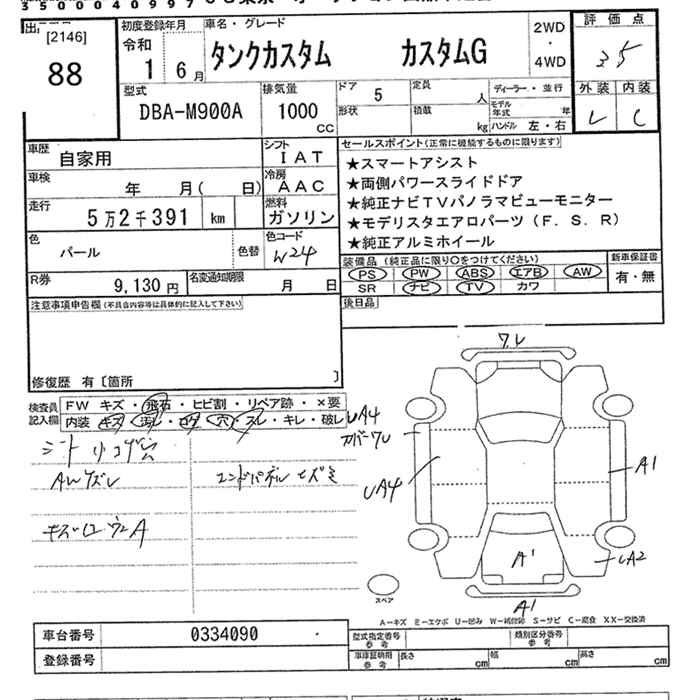 出
[2146]
88
初度登録年月
令和
1 6月
車名・グレード
タンクカスタム カスタムG
2WD
・
4WD
評価点
3.5
型式
DBA-M900A
排気量
1000
CC
ドア
5
形状
定員
人
積載
kg
ディーラー・並行
モデル年式
年
ハンドル 左・右
外装 内装
C
車歴
自家用
シフト
IAT
車検
年 月( 日)
冷房
AAC
走行
5万2千391 km
燃料
ガソリン
色
パール
色替
色コード
W24
R券
9,130円
名変通知期限
月 日
セールスポイント(正常に機能するものに限ります)
★スマートアシスト
★両側パワースライドドア
★純正ナビTVパノラマビューモニター
★モデリスタエアロパーツ(F.S.R)
★純正アルミホイール
装備品(純正品に限り○をつけてください)
PS PW ABS エアB AW
SR ナビ TV カワ
新車保証書
有・無
後日品
注意事項申告欄(不具合内容等は具体的に記入して下さい)
修復歴 有〔箇所 〕
検査員記入欄
FW キズ・飛石・ヒビ割・リペア跡・×要
内装 キズ・汚レ・コゲ・穴・スレ・キレ・破レ
シート 小コゲ穴
AWスレ
エンドパネル ヒズミ
ワレ
UA4
カバーワレ
UA4
A1
A1
UA2
A1
スペア
A-キズ E-エクボ U-凹み W-補修跡 S-サビ C-腐食 XX-交換済
車台番号
0334090
登録番号
型式指定番号
参考
類別区分番号
参考
車庫証明用
参考
長さ cm
幅 cm
高さ cm